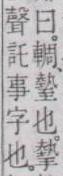 曰。輖、蟄也。摯
聲託事字也。